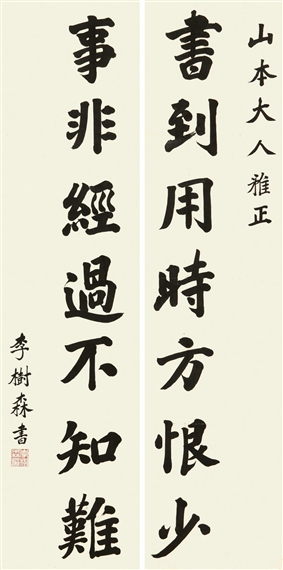 山本大人雅正
書到用時方恨少
事非經過不知難
李樹森書